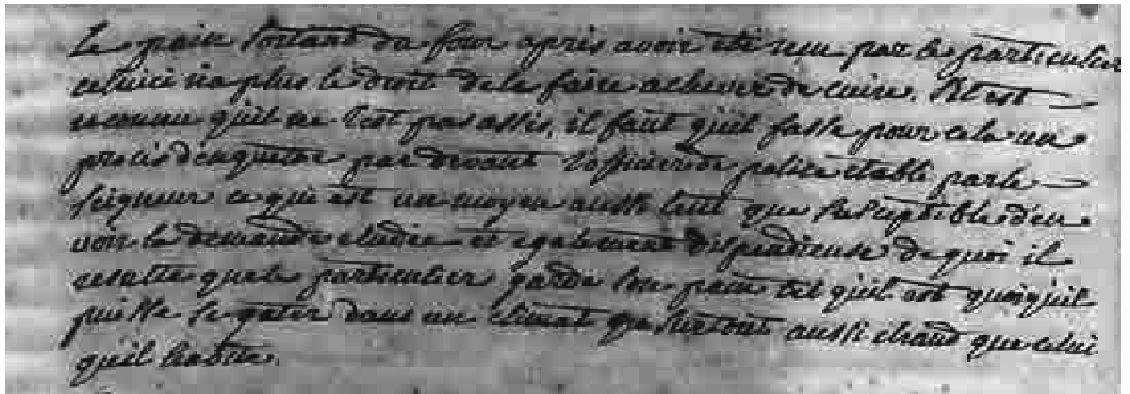 Le pain sortant du four apres avoir eté reçu par le particulier
celuici n'a plus le droit de le faire achever de cuire. S'il est
reconnu qu'il ne l'est pas assis, il faut qu'il fasse pour cela un
procés d'enquette par devant l'officier de police etabli par le
seigneur ce qui est un moyen aussi lent que susceptible d'en
voir la demande eludée et egalement dispendieuse de quoi il
resulte que le particulier garde son pain tel qu'il est quoiqu'il
puisse se gater dans un climat surtout aussi chaud que celui
qu'il habite.